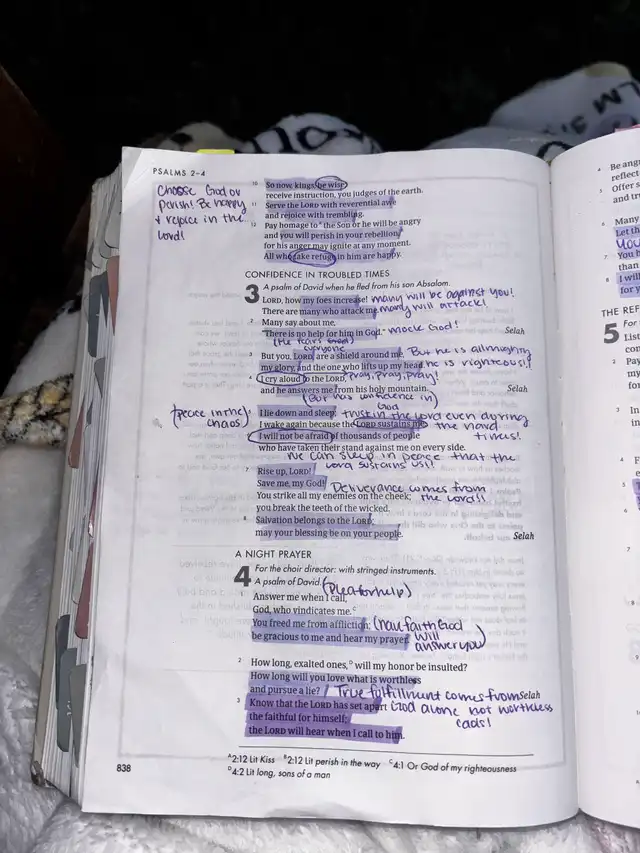 PSALMS 2–4
Choose God or
perish! Be happy
& rejoice in the
Lord!
10 So now, kings, be wise;
receive instruction, you judges of the earth.
11 Serve the LORD with reverential awe
and rejoice with trembling.
12 Pay homage to A the Son or he will be angry
and you will perish in your rebellion, B
for his anger may ignite at any moment.
All who take refuge in him are happy.
CONFIDENCE IN TROUBLED TIMES
A psalm of David when he fled from his son Absalom.
3 LORD, how my foes increase! many will be against you!
There are many who attack me. many will attack!
2 Many say about me,
"There is no help for him in God." mock God! Selah
everyone
3 But you, LORD, are a shield around me, But he is allmighty
my glory, and the one who lifts up my head. he is righteous!
4 I cry aloud to the LORD, pray, pray, pray!
and he answers me from his holy mountain. Selah
(But has confidence in)
God
(peace in the
chaos)
5 I lie down and sleep; trust in the Lord even during
I wake again because the LORD sustains me. the hard
6 I will not be afraid of thousands of people times!
who have taken their stand against me on every side.
we can sleep in peace that the
Lord sustains us!!
7 Rise up, LORD!
Save me, my God! Deliverance comes from
You strike all my enemies on the cheek; the Lord!!
you break the teeth of the wicked.
8 Salvation belongs to the LORD;
may your blessing be on your people. Selah
A NIGHT PRAYER
For the choir director: with stringed instruments.
4 A psalm of David. (Plea for help)
1 Answer me when I call,
God, who vindicates me. C
You freed me from affliction; (have faith God
be gracious to me and hear my prayer. will
answer you)
2 How long, exalted ones, D will my honor be insulted?
How long will you love what is worthless
and pursue a lie? True fulfillment comes from Selah
3 Know that the LORD has set apart God alone not worthless
the faithful for himself;
the LORD will hear when I call to him.
A 2:12 Lit Kiss B 2:12 Lit perish in the way C 4:1 Or God of my righteousness
D 4:2 Lit long, sons of a man
838
4 Be ang
reflect
5 Offer s
and tru
6 Many
Let th
You
7 You h
than
8 I will
for y
THE REF
5 For
List
2 Pa